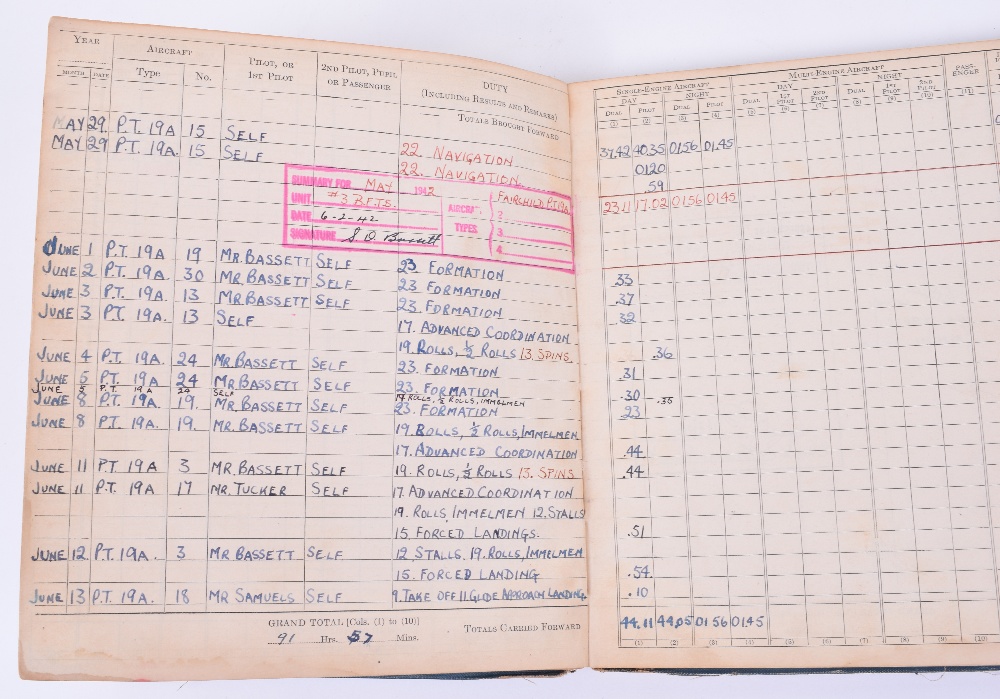 YEAR AIRCRAFT PILOT, OR 1ST PILOT 2ND PILOT, PUPIL OR PASSENGER DUTY (INCLUDING RESULTS AND REMARKS)
MONTH DATE Type No.
TOTALS BROUGHT FORWARD
MAY 29 P.T. 19A 15 SELF 22 NAVIGATION
MAY 29 P.T. 19A. 15 SELF 22. NAVIGATION
SUMMARY FOR MAY 1942
UNIT #3 B.F.T.S.
DATE 6-2-42
SIGNATURE S. D. Bassett
AIRCRAFT TYPES
FAIRCHILD PT19A
2
3
4
JUNE 1 P.T. 19A 19 MR. BASSETT SELF 23 FORMATION
JUNE 2 P.T. 19A. 30 MR. BASSETT SELF 23 FORMATION
JUNE 3 P.T. 19A. 13 MR. BASSETT SELF 23 FORMATION
JUNE 3 P.T. 19A. 13 SELF 17. ADVANCED COORDINATION
19. ROLLS, ½ ROLLS 13. SPINS.
JUNE 4 P.T. 19A. 24 MR. BASSETT SELF 23. FORMATION
JUNE 5 P.T. 19A 24 MR. BASSETT SELF 23. FORMATION
JUNE 5 P.T. 19A 24 SELF 19 ROLLS, ½ ROLLS, IMMELMEN
JUNE 8 P.T. 19A. 19. MR. BASSETT SELF 23. FORMATION
JUNE 8 P.T. 19A. 19. MR. BASSETT SELF 19. ROLLS, ½ ROLLS, IMMELMEN
17. ADVANCED COORDINATION
JUNE 11 P.T 19A 3 MR. BASSETT SELF 19. ROLLS, ½ ROLLS 13. SPINS
JUNE 11 P.T. 19A 17 MR. TUCKER SELF 17. ADVANCED COORDINATION
19. ROLLS IMMELMEN 12. STALLS
15. FORCED LANDINGS.
JUNE 12 P.T. 19A. 3 MR BASSETT SELF 12 STALLS. 19. ROLLS, IMMELMEN
15. FORCED LANDING
JUNE 13 P.T. 19A. 18 MR SAMUELS SELF 9. TAKE OFF 11. GLIDE APPROACH LANDING
GRAND TOTAL [Cols. (1) to (10)]
91 Hrs. 57 Mins.
TOTALS CARRIED FORWARD
SINGLE-ENGINE AIRCRAFT MULTI-ENGINE AIRCRAFT PASS-ENGER
DAY NIGHT DAY NIGHT
DUAL PILOT DUAL PILOT DUAL 1ST PILOT 2ND PILOT DUAL 1ST PILOT 2ND PILOT
(1) (2) (3) (4) (5) (6) (7) (8) (9) (10) (11)
37.42 40.35 01.56 01.45
01.20
.59
23.11 17.02 01.56 01.45
.33
.37
.32
.36
.31
.30 .35
.23
.44
.44
.51
.54
.10
44.11 44.05 01 56 01.45
(1) (2) (3) (4) (5) (6) (7) (8) (9) (10)